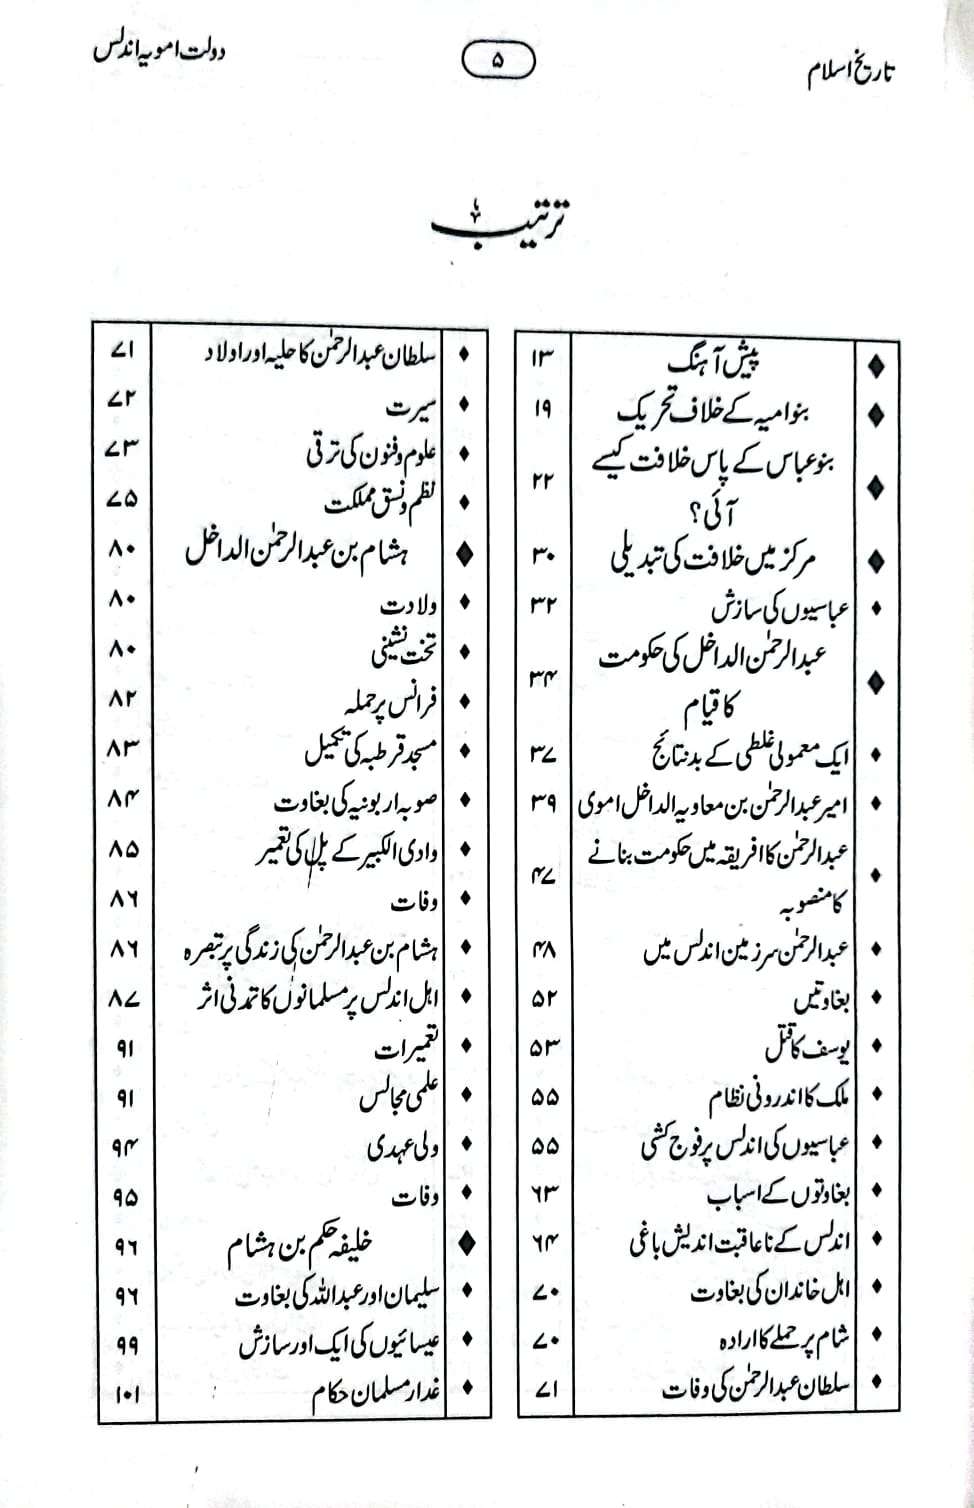 تاریخ اسلام
۵
دولت امویہ اندلس
ترتیب
پیش آہنگ ۱۳
بنو امیہ کے خلاف تحریک ۱۹
بنو عباس کے پاس خلافت کیسے
آئی؟ ۲۲
مرکز میں خلافت کی تبدیلی ۳۰
عباسیوں کی سازش ۳۲
عبدالرحمٰن الداخل کی حکومت
کا قیام ۳۴
ایک معمولی غلطی کے بد نتائج ۳۷
امیر عبدالرحمٰن بن معاویہ الداخل اموی ۳۹
عبدالرحمٰن کا افریقہ میں حکومت بنانے
کا منصوبہ ۴۷
عبدالرحمٰن سرزمین اندلس میں ۴۸
بغاوتیں ۵۲
یوسف کا قتل ۵۳
ملک کا اندرونی نظام ۵۵
عباسیوں کی اندلس پر فوج کشی ۵۵
بغاوتوں کے اسباب ۶۳
اندلس کے نا عاقبت اندیش باغی ۶۴
اہل خاندان کی بغاوت ۷۰
شام پر حملے کا ارادہ ۷۰
سلطان عبدالرحمٰن کی وفات ۷۱
سلطان عبدالرحمٰن کا حلیہ اور اولاد ۷۱
سیرت ۷۲
علوم و فنون کی ترقی ۷۳
نظم و نسق مملکت ۷۵
ہشام بن عبدالرحمٰن الداخل ۸۰
ولادت ۸۰
تخت نشینی ۸۰
فرانس پر حملہ ۸۲
مسجد قرطبہ کی تکمیل ۸۳
صوبہ اربونیہ کی بغاوت ۸۴
وادی الکبیر کے پل کی تعمیر ۸۵
وفات ۸۶
ہشام بن عبدالرحمٰن کی زندگی پر تبصرہ ۸۶
اہل اندلس پر مسلمانوں کا تمدنی اثر ۸۷
تعمیرات ۹۱
علمی مجالس ۹۱
ولی عہدی ۹۴
وفات ۹۵
خلیفہ حکم بن ہشام ۹۶
سلیمان اور عبداللہ کی بغاوت ۹۶
عیسائیوں کی ایک اور سازش ۹۹
غدار مسلمان حکام ۱۰۱